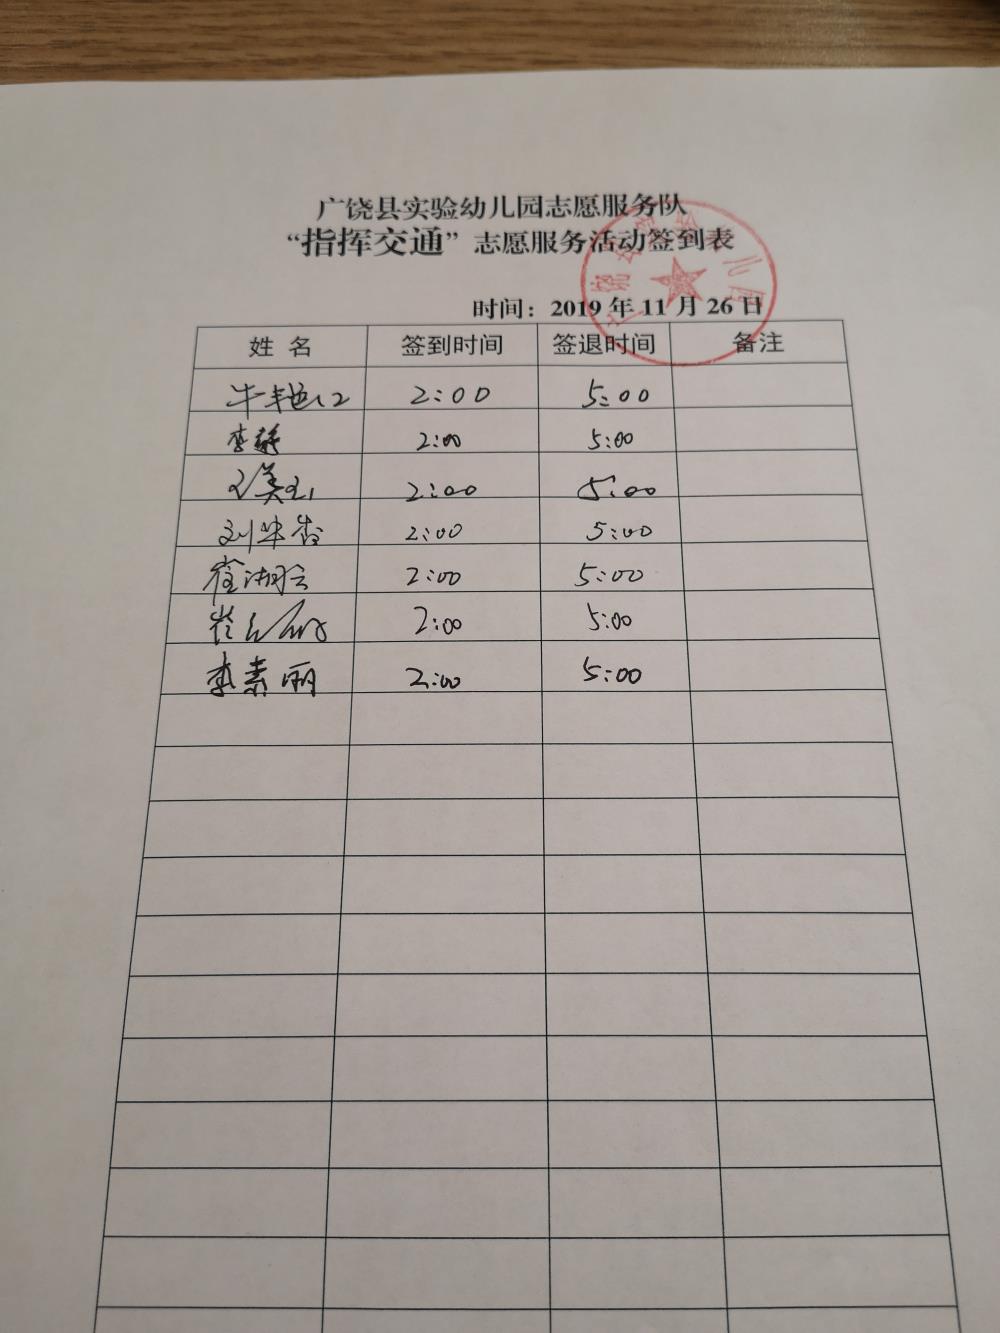 广饶县实验幼儿园志愿服务队
“指挥交通”志愿服务活动签到表
广饶县实验幼儿园
时间：2019年11月26日
姓名 签到时间 签退时间 备注
牛艳 2:00 5:00
李静 2:00 5:00
美玉 2:00 5:00
刘华杏 2:00 5:00
崔湖云 2:00 5:00
崔 2:00 5:00
李素丽 2:00 5:00